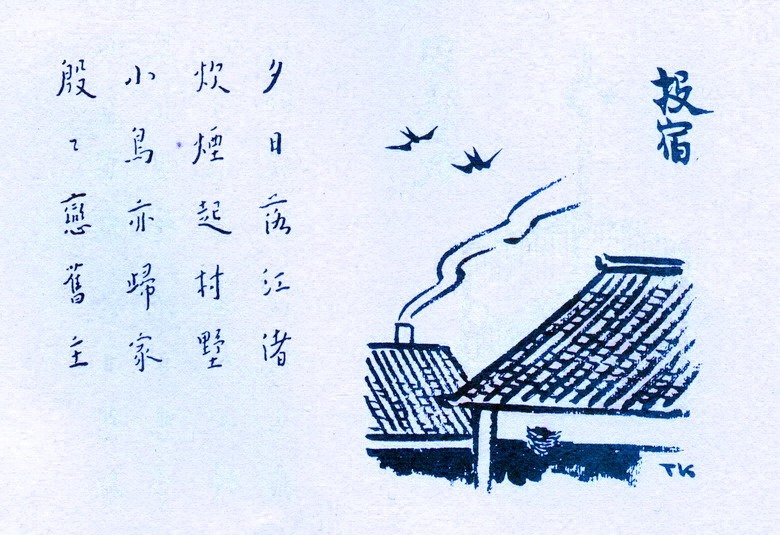 投宿
夕日落江渚
炊煙起村野
小鳥亦歸家
殷々戀舊主
TK